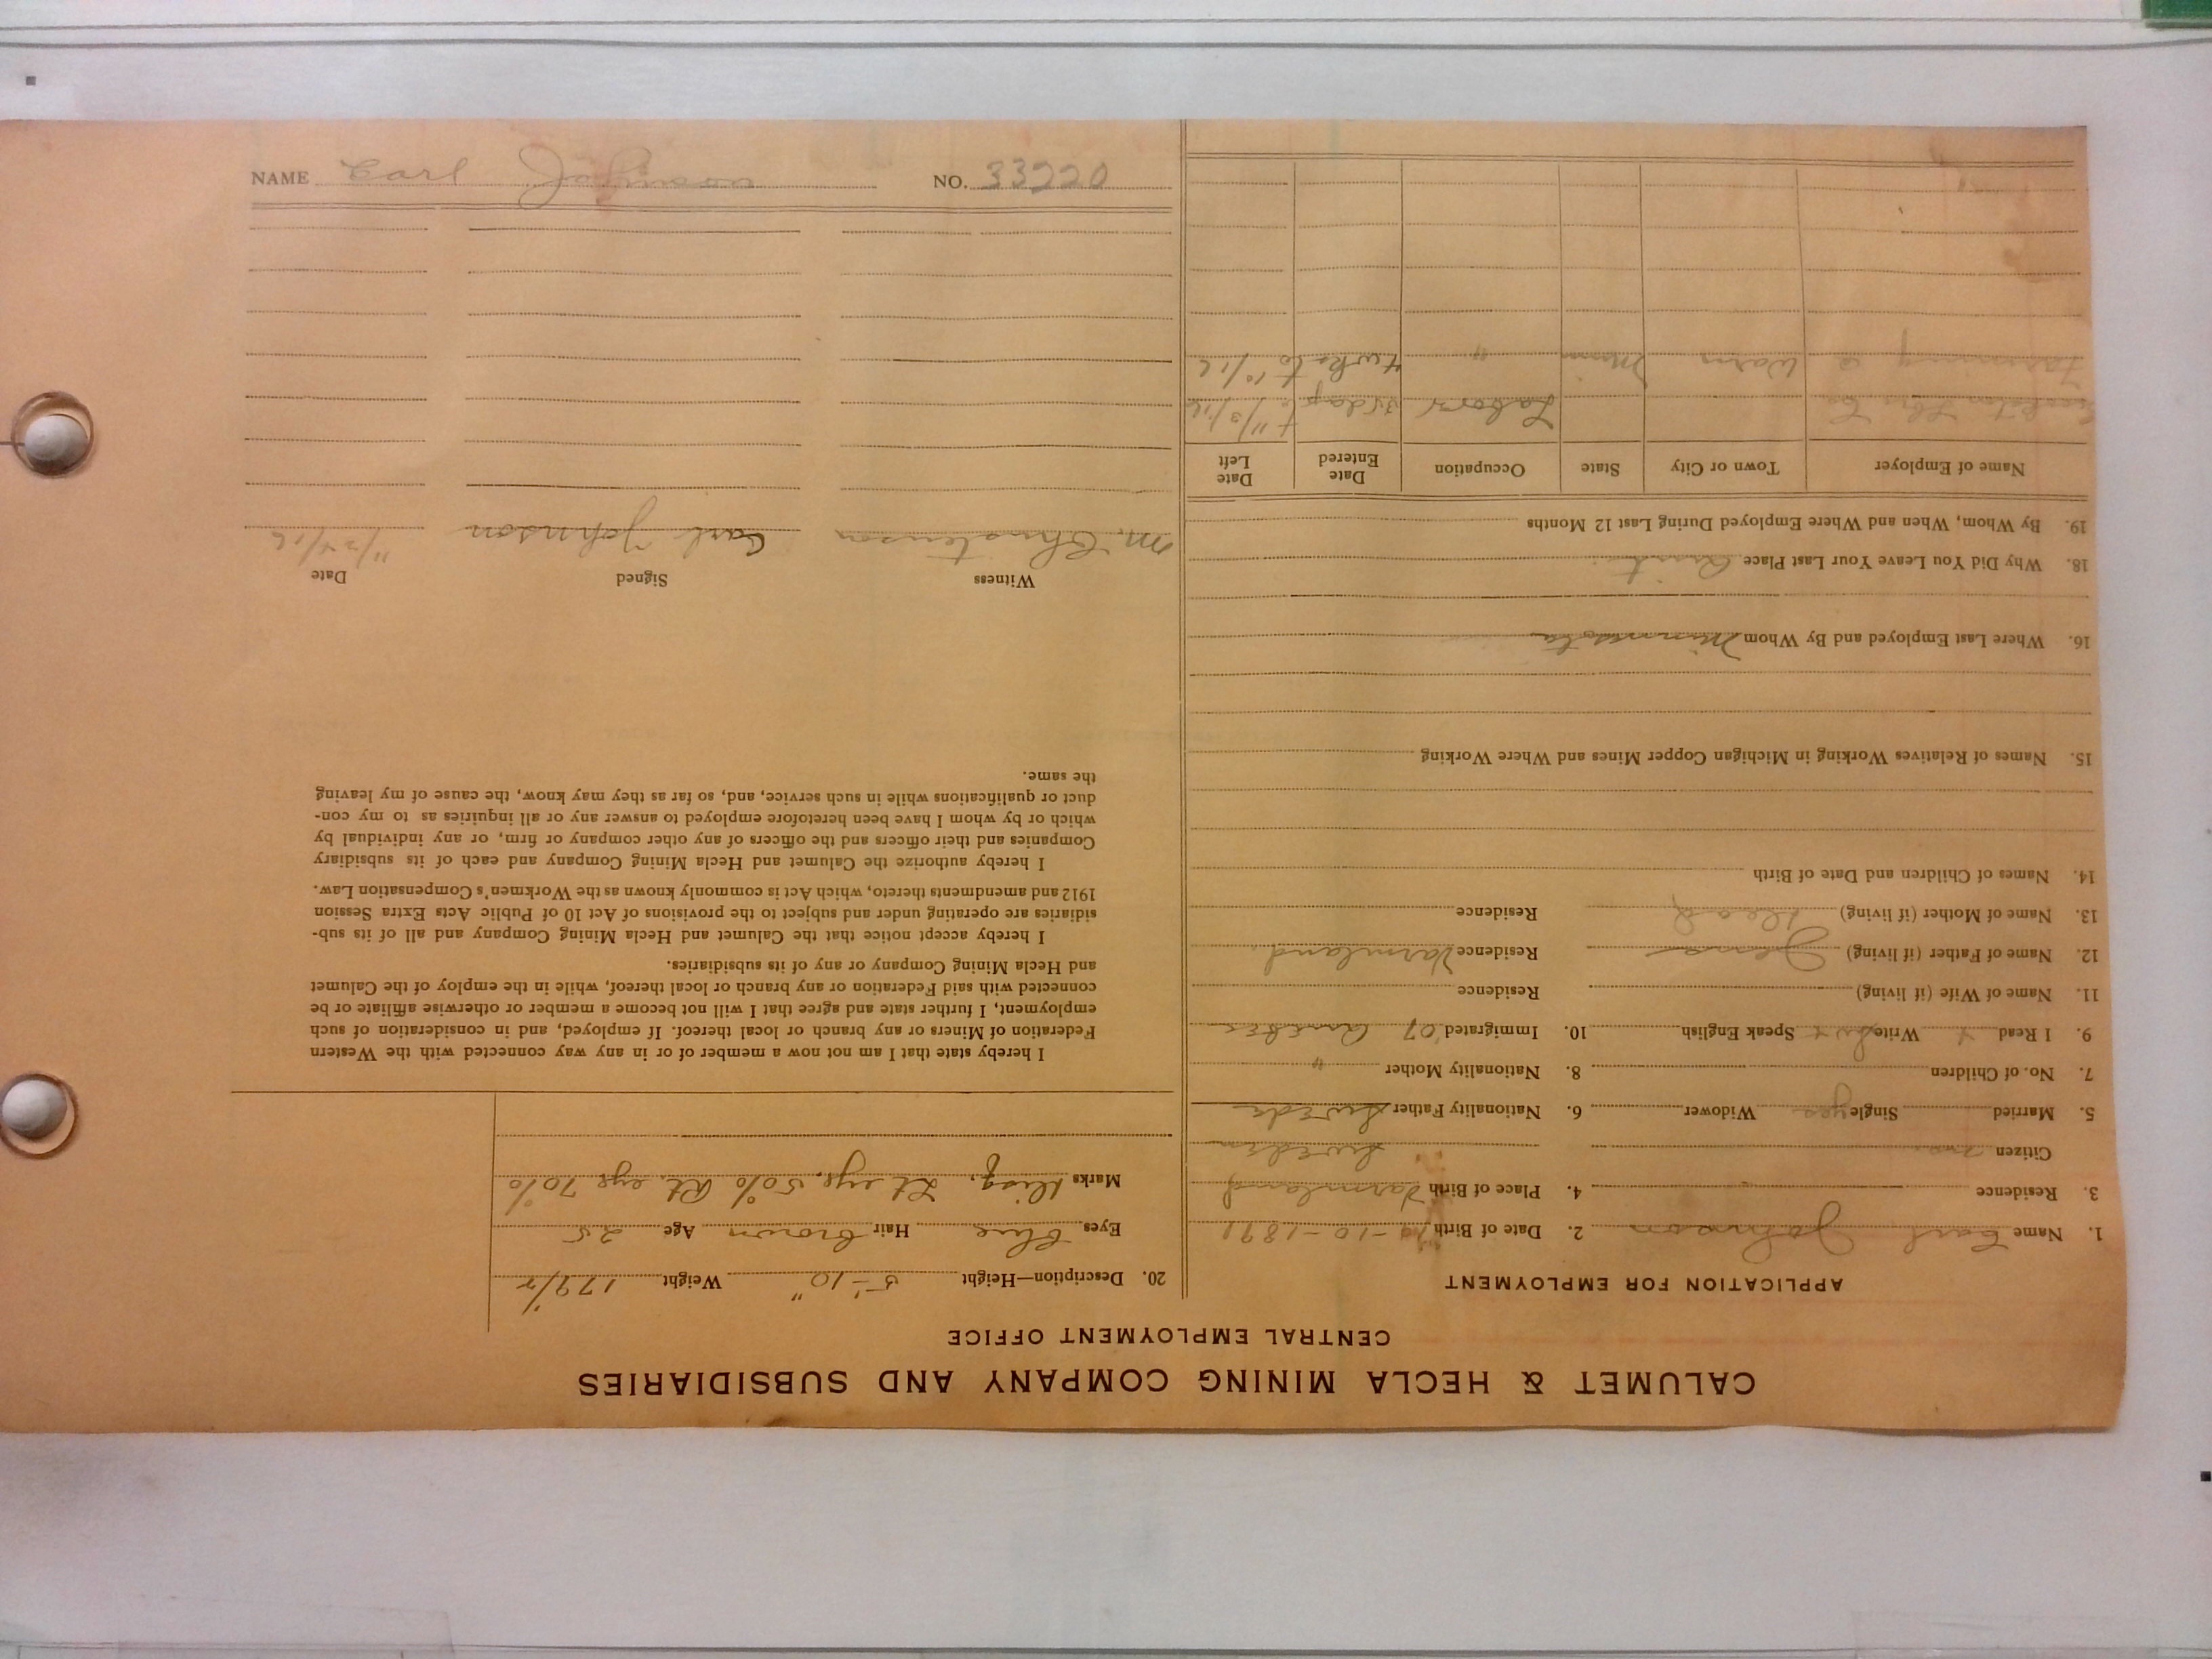 CALUMET & HECLA MINING COMPANY AND SUBSIDIARIES
CENTRAL EMPLOYMENT OFFICE
APPLICATION FOR EMPLOYMENT
1. Name Carl Johnson 2. Date of Birth -10-1891
3. Residence 4. Place of Birth Varmland
Citizen no Sweden
5. Married Single yes Widower 6. Nationality Father Swede
7. No. of Children 8. Nationality Mother "
9. I Read x Write Speak English 10. Immigrated '07
11. Name of Wife (if living) Residence
12. Name of Father (if living) Residence Varmland
13. Name of Mother (if living) dead Residence
14. Names of Children and Date of Birth
15. Names of Relatives Working in Michigan Copper Mines and Where Working
16. Where Last Employed and By Whom Minnesota
18. Why Did You Leave Your Last Place Quit
19. By Whom, When and Where Employed During Last 12 Months
Name of Employer Town or City State Occupation Date Entered Date Left
Co Labor days to 11/3/16
Farming Warn Minn " 4 wks to 10/16
20. Description—Height 5'-10" Weight 179
Eyes Blue Hair Brown Age 25
Marks Lt eye 50% Rt eye 70%
I hereby state that I am not now a member of or in any way connected with the Western
Federation of Miners or any branch or local thereof. If employed, and in consideration of such
employment, I further state and agree that I will not become a member or otherwise affiliate or be
connected with said Federation or any branch or local thereof, while in the employ of the Calumet
and Hecla Mining Company or any of its subsidiaries.
I hereby accept notice that the Calumet and Hecla Mining Company and all of its sub-
sidiaries are operating under and subject to the provisions of Act 10 of Public Acts Extra Session
1912 and amendments thereto, which Act is commonly known as the Workmen's Compensation Law.
I hereby authorize the Calumet and Hecla Mining Company and each of its subsidiary
Companies and their officers and the officers of any other company or firm, or any individual by
which or by whom I have been heretofore employed to answer any or all inquiries as to my con-
duct or qualifications while in such service, and, so far as they may know, the cause of my leaving
the same.
Witness Signed Date
M. Christenson Carl Johnson 11/24/16
NAME Carl Johnson NO. 33220